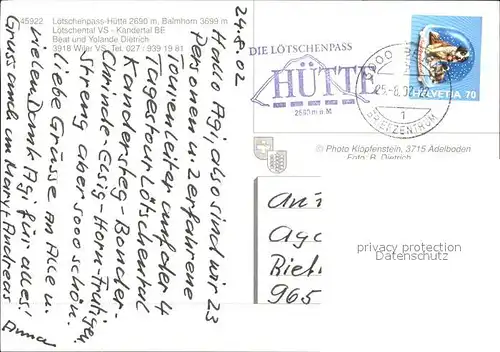 45922 Lötschenpass-Hütte 2690 m, Balmhorn 3699 m
Lötschental VS - Kandertal BE
Beat und Yolande Dietrich
3918 Wiler VS, Tel. 027 - 939 19 81
DIE LÖTSCHENPASS
HÜTTE
2690 m ü M
25.-8.02
1
BRIEFZENTRUM
HELVETIA 70
© Photo Klopfenstein, 3715 Adelboden
Foto: B. Dietrich
24.8.02
Hallo Agi also sind wir 23
Personen u. 2 erfahrene
Tourenleiter auf der 4
Tagestour Lötschental
Kandersteg-Bonder-
Elsig-Horn-
Streng aber sooo schön.
Liebe Grüsse an Alle u.
vielen Dank Agi für alles!
Gruss auch an Mary + Andreas
Anna
965
privacy protection
Datenschutz